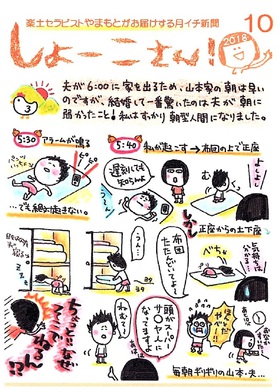 楽土セラピストやまもとがお届けする月イチ新聞
しょーこさん!
2018
10
夫が6:00に家を出るため、山本家の朝は早い
のですが、結婚して一番驚いたのは夫が朝に
弱かったこと!私はすっかり朝型人間になりました。
5:30
アラームが鳴る
…でも絶対起きない。
5:40
私が起こす→布団の上で正座
遅刻しても
知らんよ
むくっ
しかし
正座からの土下座
布団
たたんどいてよ!
うん…
ねむい!
頭がスーパー
サイヤ人に
なってますよ
毎朝ギリギリの山本・夫…